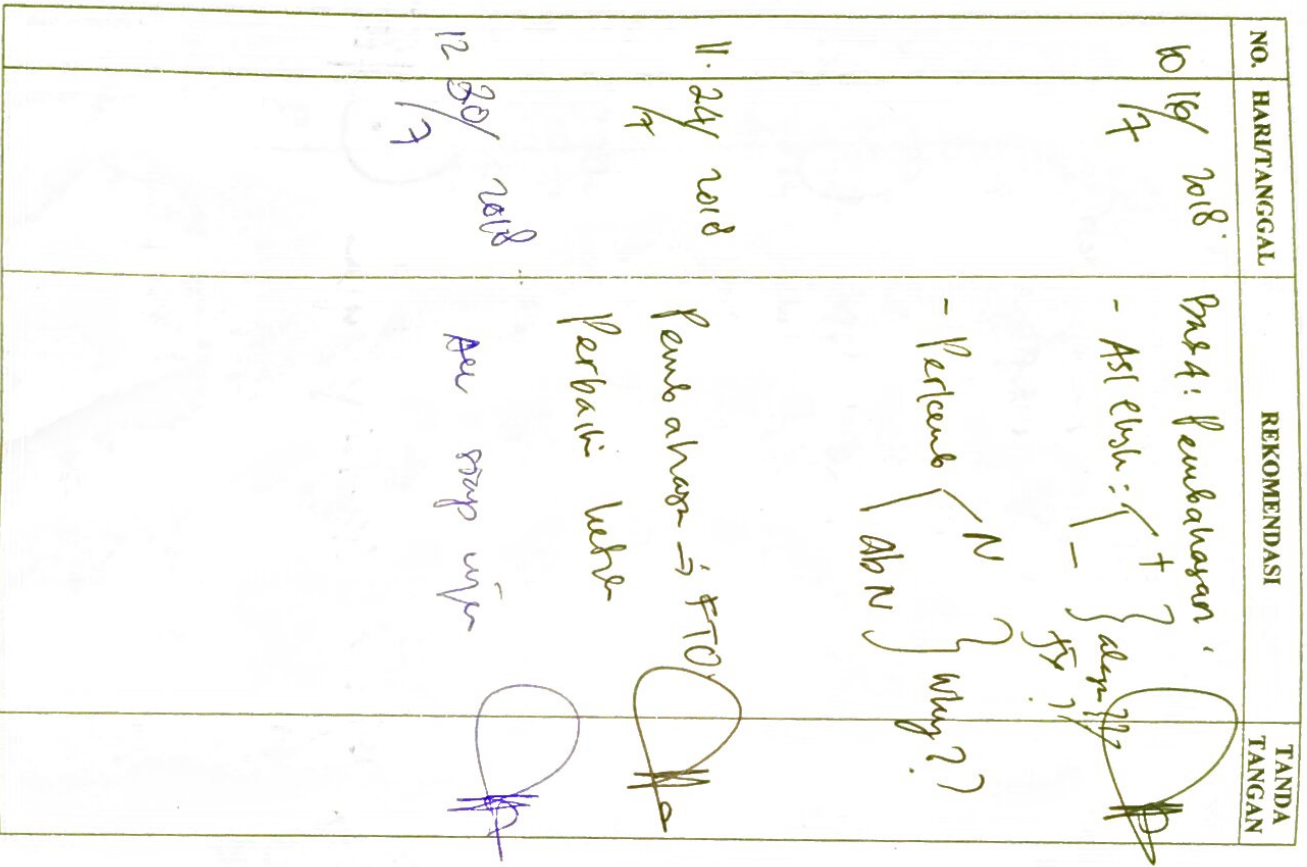 NO. HARI/TANGGAL REKOMENDASI TANDA TANGAN
10 16/7 2018 Bab 4: Pembahasan:
- ASI Eksk: + -
- Perkemb N abN } Why??
11. 24/7 2018 Pembahasan → FTO
Perbaiki
12 30/7 2018 Acc siap ujian